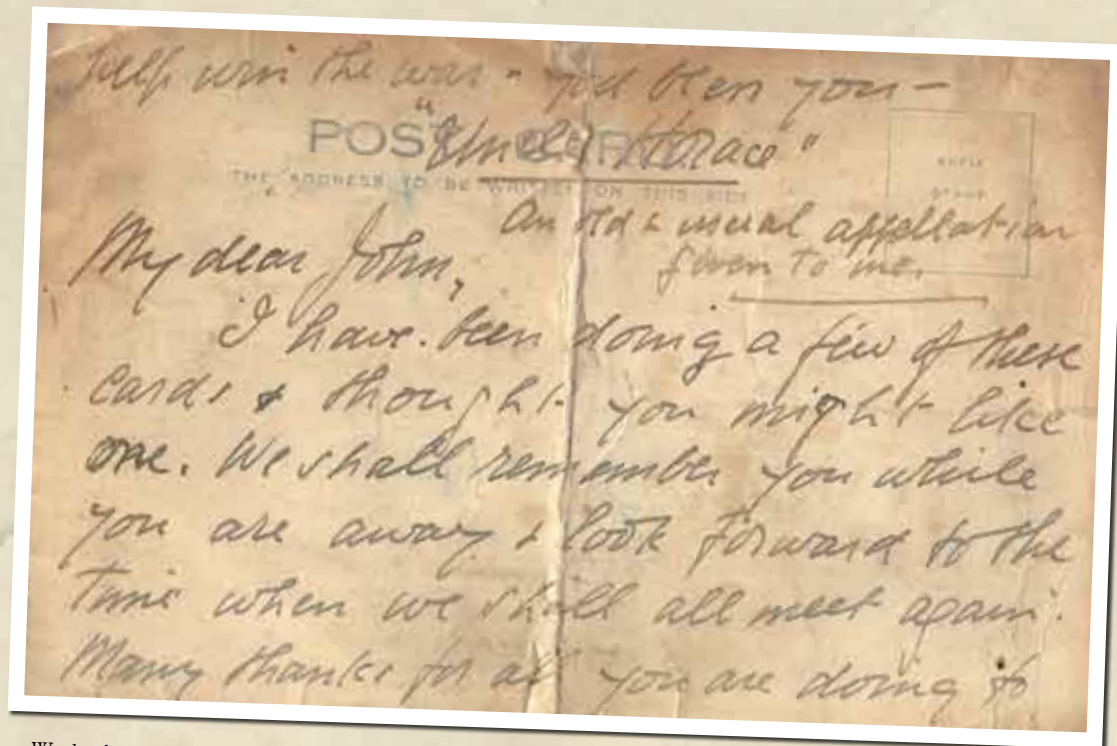 help win the war - god bless you -
"Uncle Horace"
POST CARD
THE ADDRESS TO BE WRITTEN ON THIS SIDE
AFFIX
STAMP
An old & usual appellation
given to me.
My dear John,
I have been doing a few of these
cards & thought you might like
one. We shall remember you while
you are away & look forward to the
time when we shall all meet again.
Many thanks for all you are doing to